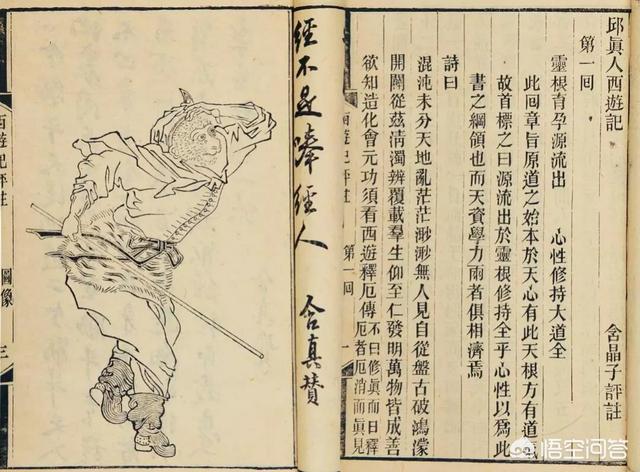 邱眞人西遊記
第一回
含晶子評註
靈根育孕源流出　心性修持大道全
此回章旨原道之始本於天心有此天根方有道
故首標之曰源流出於靈根修持全乎心性以爲此
書之綱領也而天資學力兩者俱相濟焉
詩曰
混沌未分天地亂茫茫渺渺無人見自從盤古破鴻濛
開闢從茲清濁辨覆載羣生仰至仁發明萬物皆成善
欲知造化會元功須看西遊釋厄傳
不曰修眞而曰釋
厄者厄消而眞見
西遊記評註
第一回
一
經不是唪經人
含真賛
西遊記評註
圖像
三
悟空问答